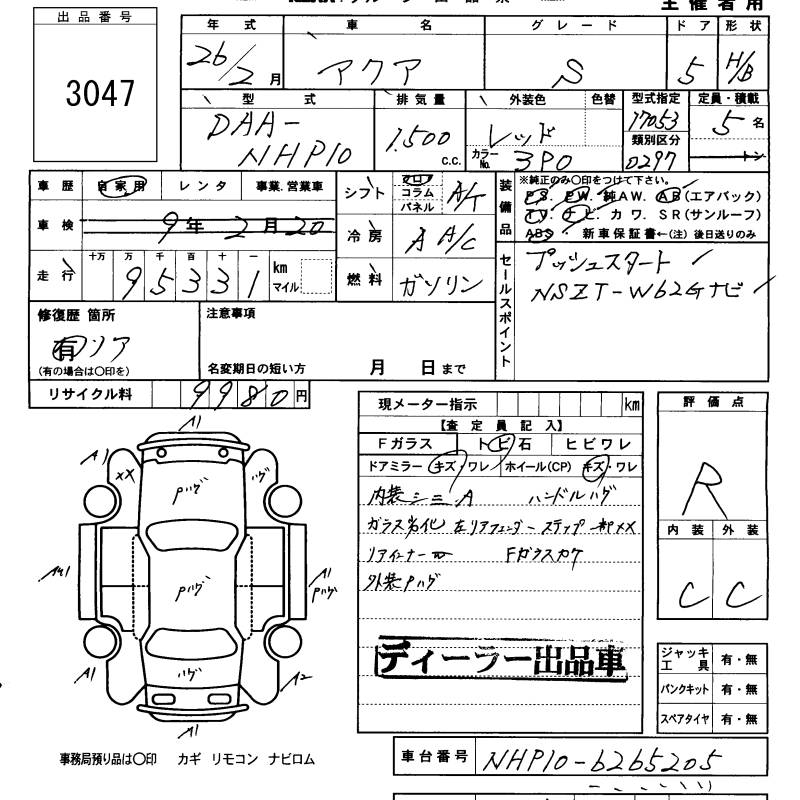 主催者用
出品番号
3047
年式 車名 グレード ドア 形状
26/2月 アクア S 5 H/B
型式 排気量 外装色 色替 型式指定 定員・積載
DAA-NHP10 1,500 c.c. レッド 17053 5名
カラーNo. 3P0 類別区分 0297 トン
車歴 自家用 レンタ 事業.営業車
車検 9年2月20
走行 十万 万 千 百 十 一
95331 km マイル
シフト フロ コラム パネル A/T
冷房 A A/C
燃料 ガソリン
装備品 ※純正のみ〇印をつけて下さい。
P.S. P.W. 純AW. AB(エアバック)
T.V. ナビ. カワ. SR(サンルーフ)
ABS 新車保証書←(注) 後日送りのみ
セールスポイント
プッシュスタート
NSZT-W62Gナビ
修復歴 箇所
有 リア
(有の場合は〇印を)
注意事項
名変期日の短い方 月 日まで
リサイクル料 9980円
現メーター指示 km
【査定員記入】
Fガラス トビ石 ヒビワレ
ドアミラー キズ・ワレ ホイール(CP) キズ・ワレ
内装シミA ハンドルハゲ
ガラス劣化 左リアフェンダーステップ一部XX
リアインナー Fガラスカケ
外装Pハゲ
ディーラー出品車
評価点
R
内装 外装
C C
ジャッキ工具 有・無
パンクキット 有・無
スペアタイヤ 有・無
A1
A1 XX Pハゲ ハゲ
Pハゲ A1 Pハゲ
A1 ハゲ A2
A1
事務局預り品は〇印 カギ リモコン ナビロム
車台番号 NHP10-6265205